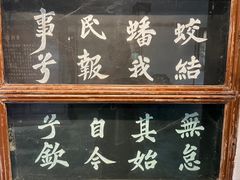 蛟結
蟠我
民報
事兮
無怠
其始
自今
兮欽